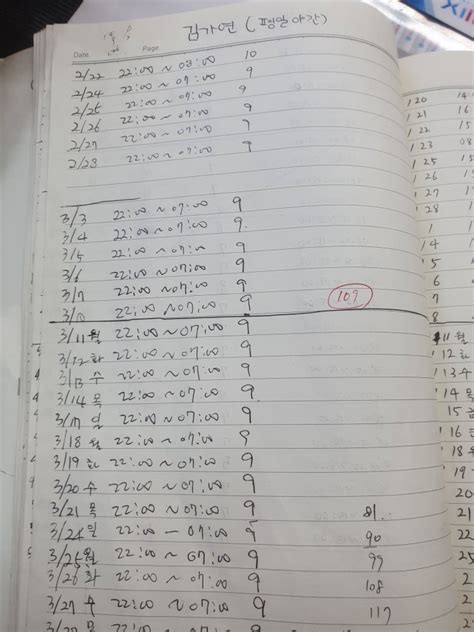 Date Page 김가연 (평일야간)
2/22 22:00 ~ 08:00 10
2/24 22:00 ~ 07:00 9
2/25 22:00 ~ 07:00 9
2/26 22:00 ~ 07:00 9
2/27 22:00 ~ 07:00 9
2/28 22:00 ~ 07:00 9
3/3 22:00 ~ 07:00 9
3/4 22:00 ~ 07:00 9
3/5 22:00 ~ 07:00 9
3/6 22:00 ~ 07:00 9
3/7 22:00 ~ 07:00 9
22:00 ~ 07:00 9 109
3/11 월 22:00 ~ 07:00 9
3/12 화 22:00 ~ 07:00 9
3/13 수 22:00 ~ 07:00 9
3/14 목 22:00 ~ 07:00 9
3/17 일 22:00 ~ 07:00 9
3/18 월 22:00 ~ 07:00 9
3/19 화 22:00 ~ 07:00 9
3/20 수 22:00 ~ 07:00 9
3/21 목 22:00 ~ 07:00 9 81
3/24 일 22:00 - 07:00 9 90
3/25 월 22:00 ~ 07:00 9 99
3/26 화 22:00 ~ 07:00 9 108
3/27 수 22:00 ~ 07:00 9 117